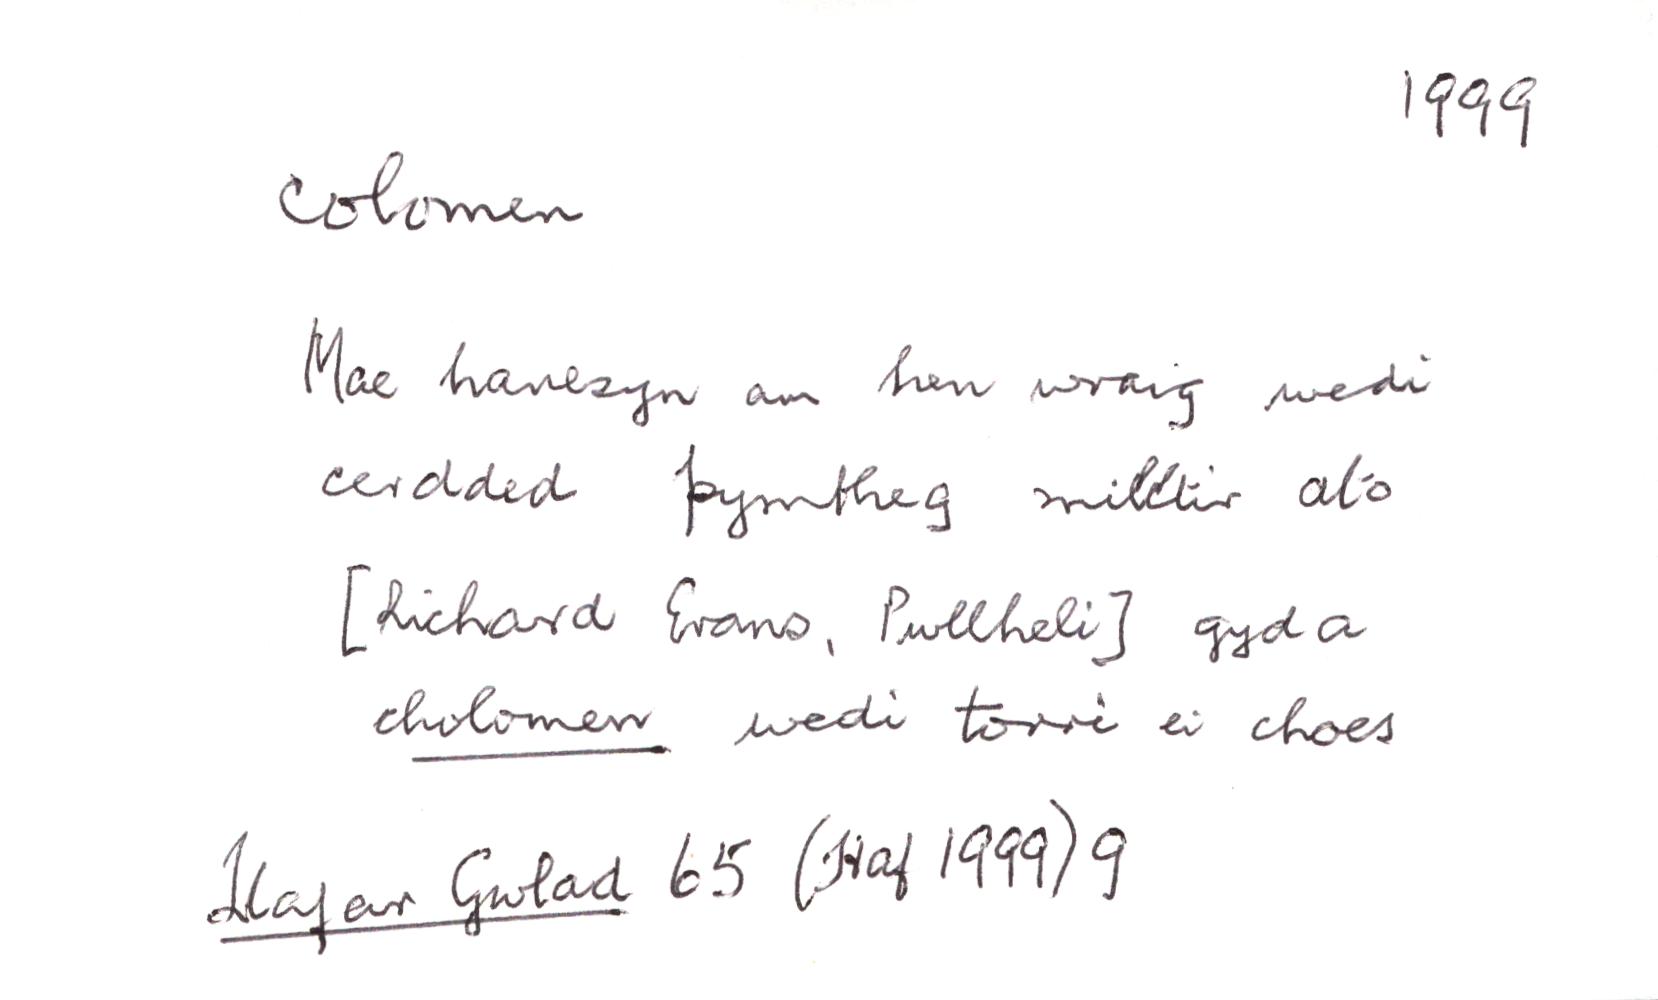 1999
colomen
Mae hanesyn am hen wraig wedi
cerdded pymtheg milltir ato
[Richard Evans, Pwllheli] gyda
cholomen wedi torri ei choes
Llafar Gwlad 65 (Haf 1999) 9